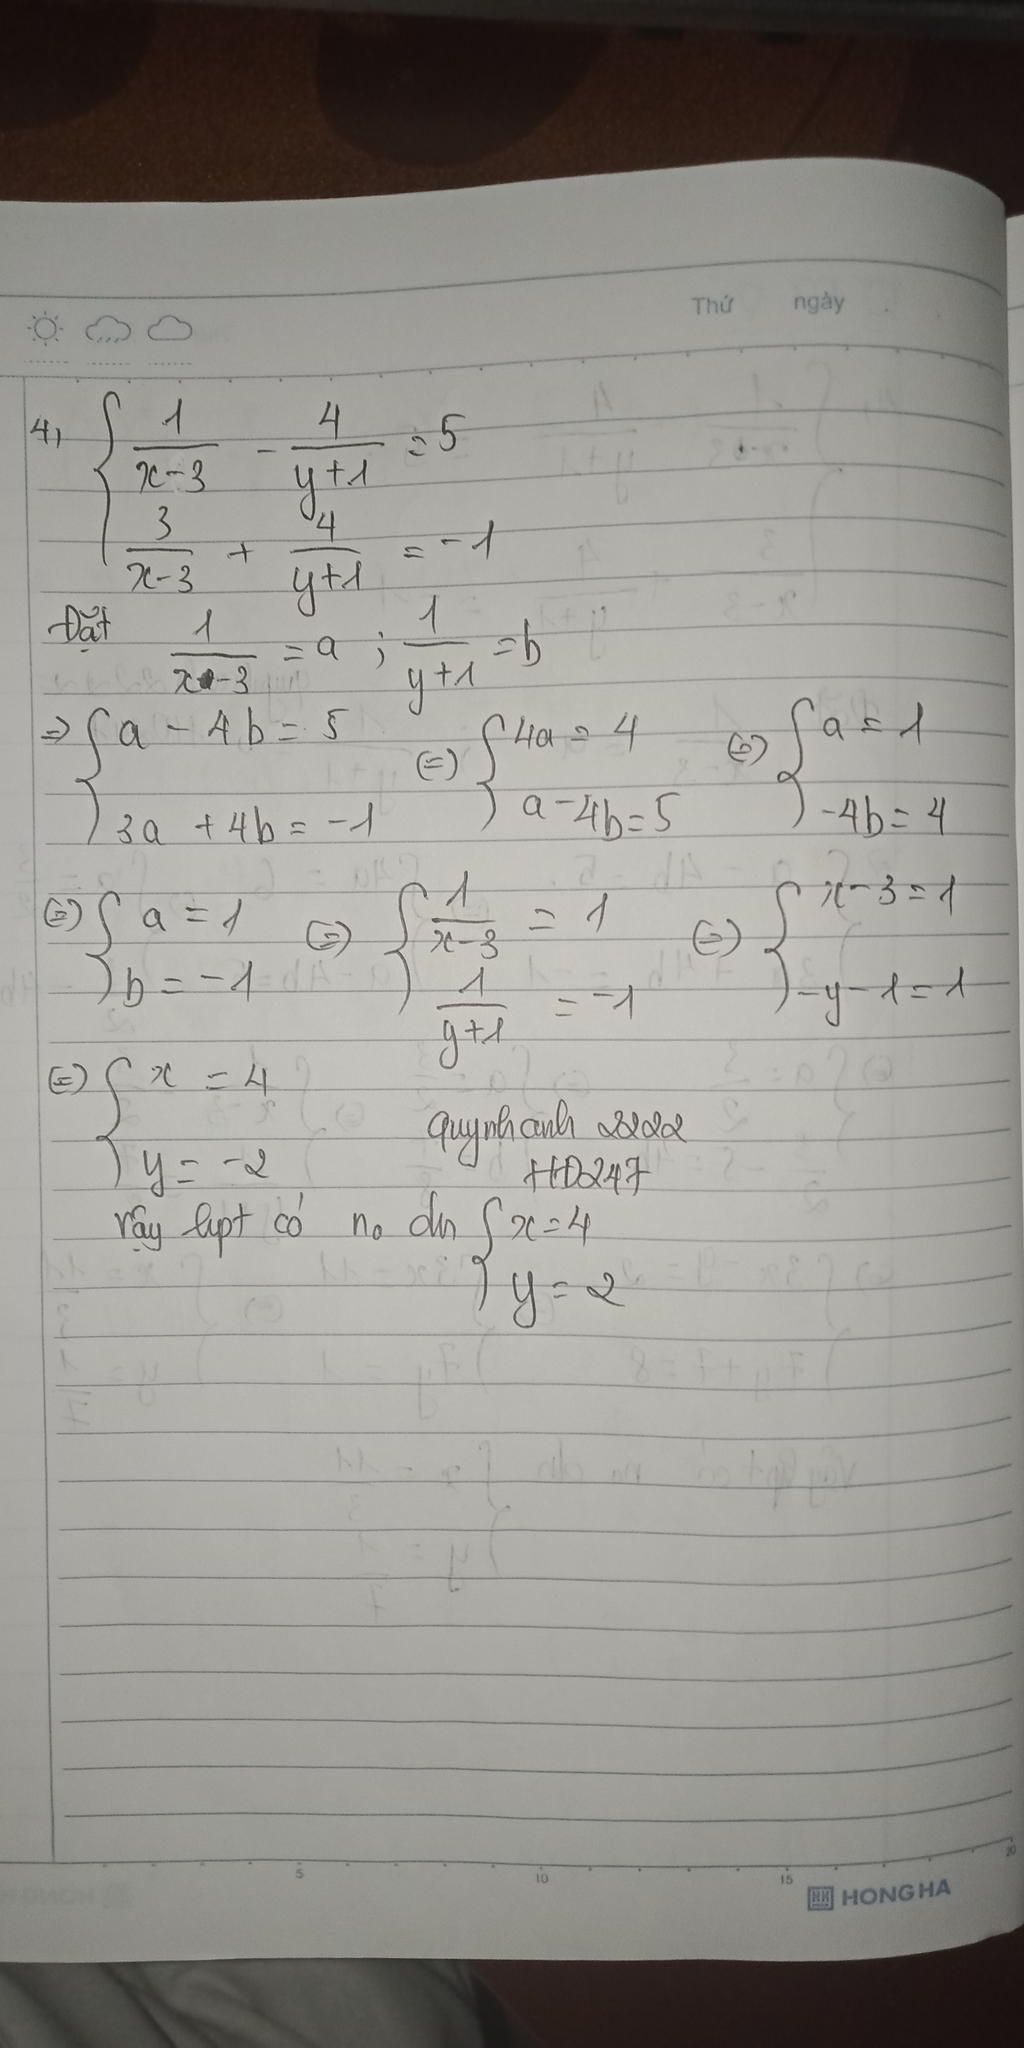 Thứ ngày
4, { 1/(x-3) - 4/(y+1) = 5
3/(x-3) + 4/(y+1) = -1
Đặt 1/(x-3) = a ; 1/(y+1) = b
=> { a - 4b = 5 (=) { 4a = 4 (=) { a = 1
3a + 4b = -1 a - 4b = 5 -4b = 4
(=) { a = 1 (=) { 1/(x-3) = 1 (=) { x-3 = 1
b = -1 1/(y+1) = -1 -y-1 = 1
(=) { x = 4
y = -2
quynhanh 2222
HD247
vậy hpt có no dn { x = 4
y = 2
5 10 15 20
HONG HA